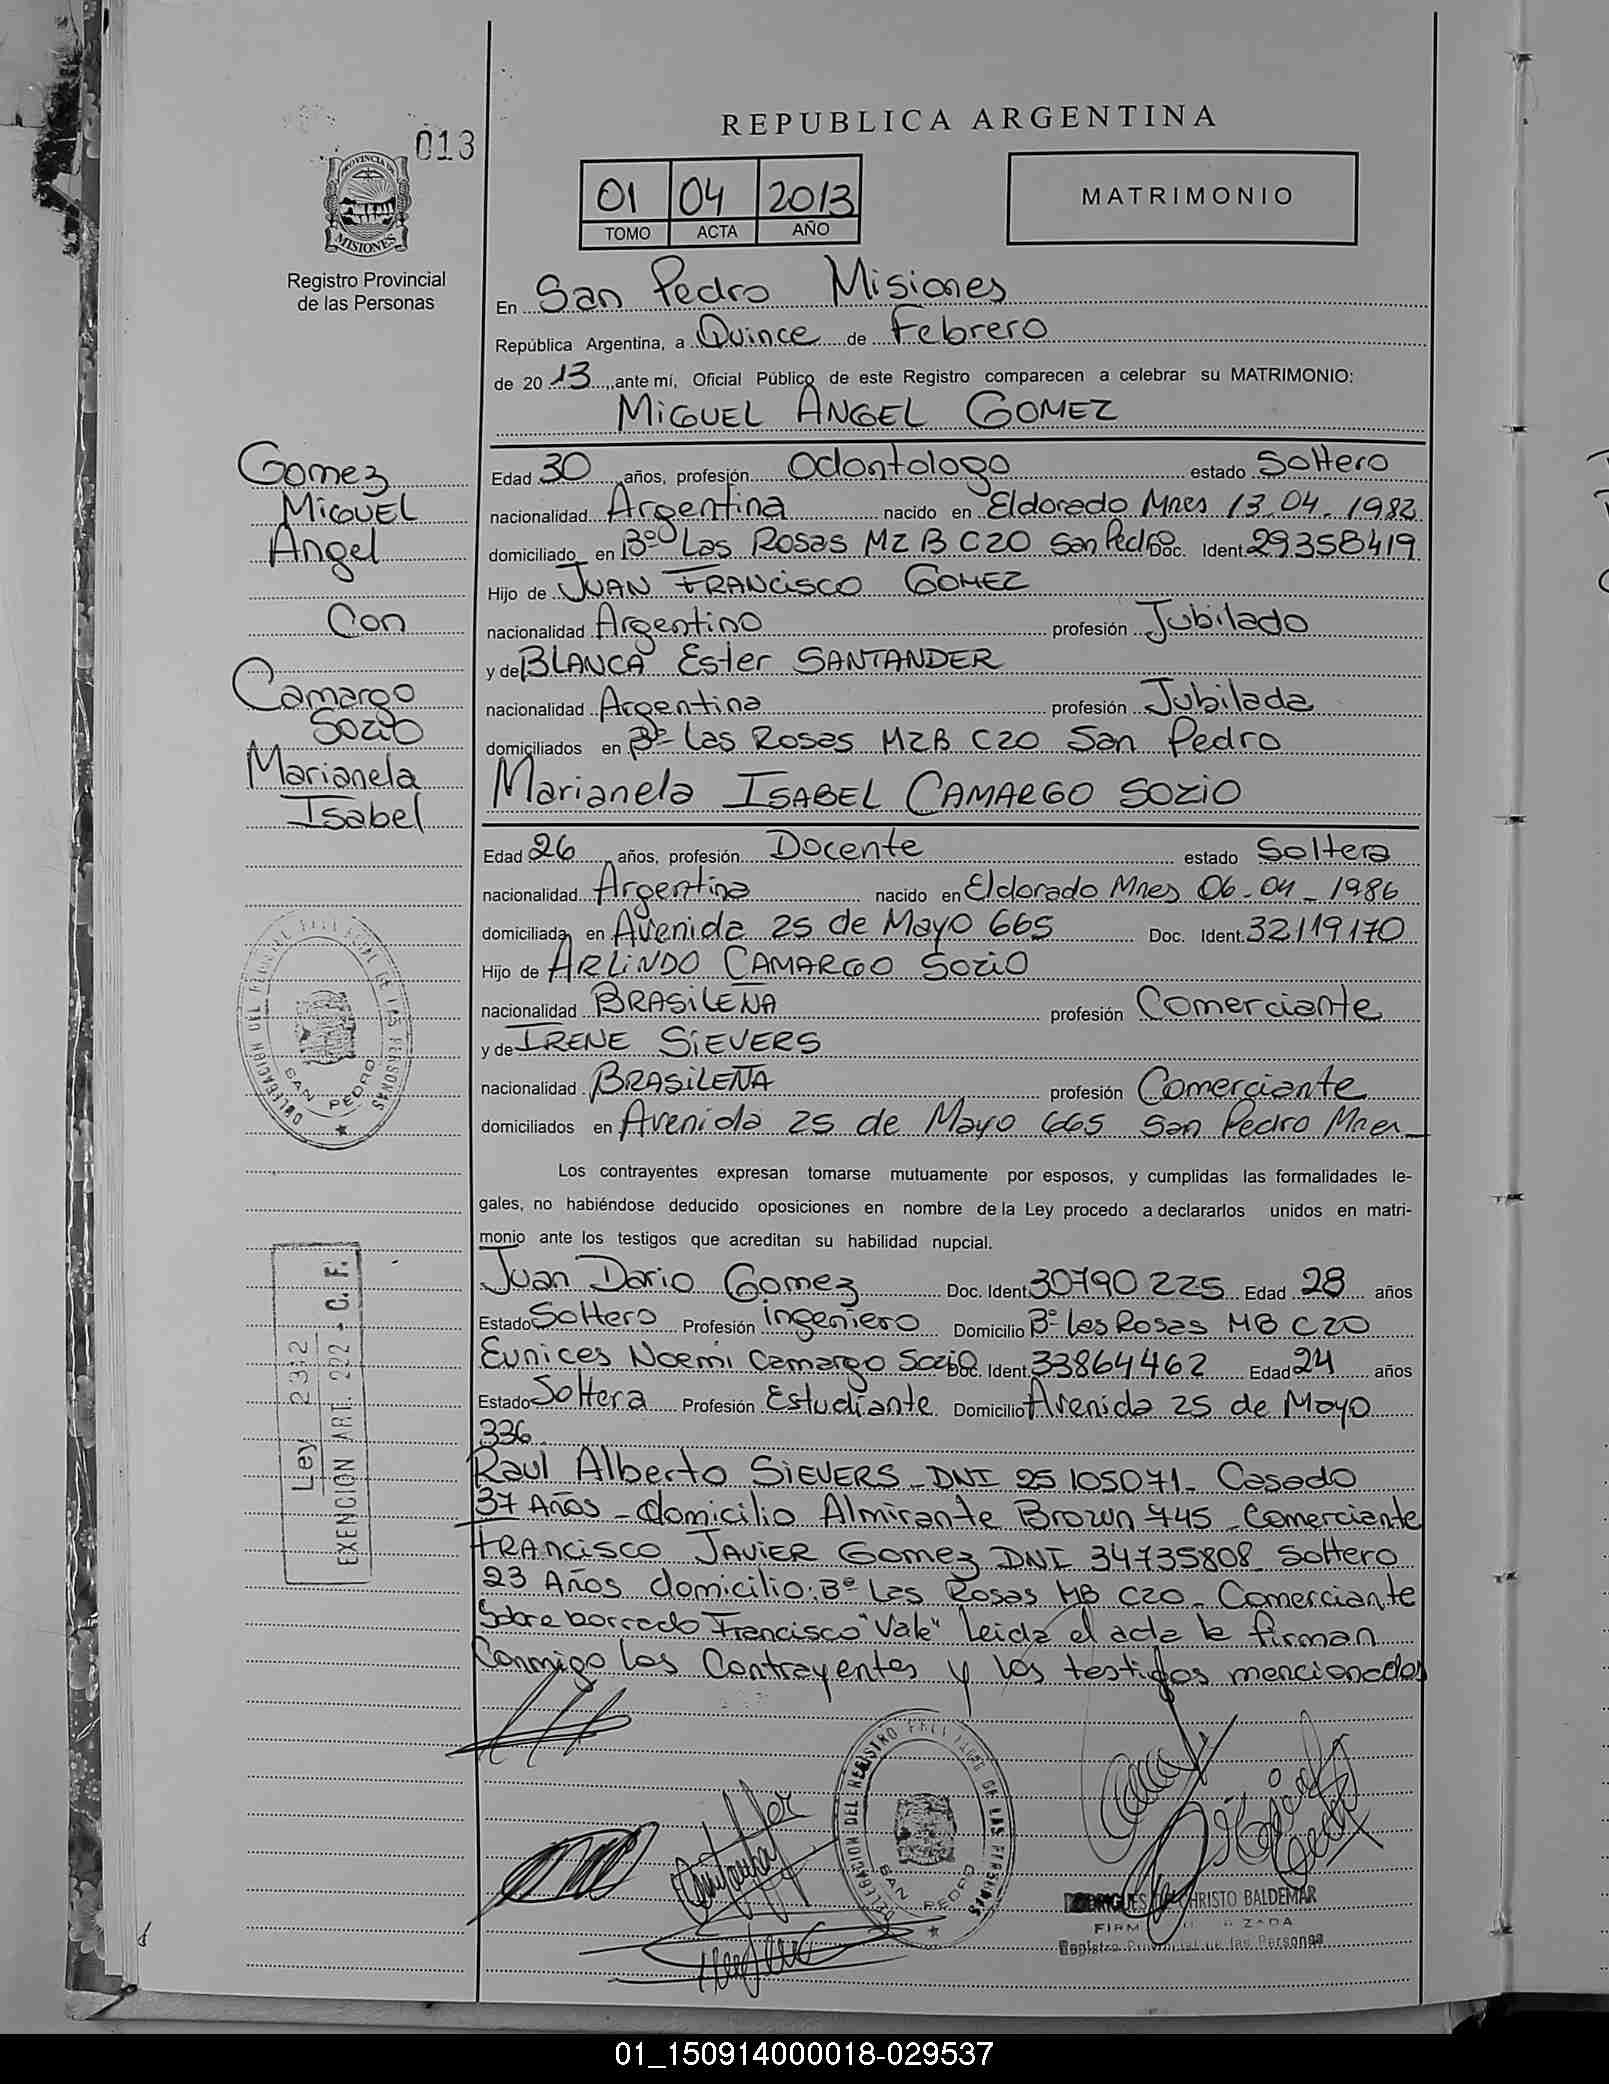 013
PROVINCIA DE
MISIONES
Registro Provincial
de las Personas
REPUBLICA ARGENTINA
01 04 2013
TOMO ACTA AÑO
MATRIMONIO
En San Pedro Misiones
República Argentina, a Quince de Febrero
de 20 13, ante mí, Oficial Público de este Registro comparecen a celebrar su MATRIMONIO:
MIGUEL ANGEL GOMEZ
Gomez
MIGUEL
Angel
Con
Camargo
SOZIO
Marianela
Isabel
Edad 30 años, profesión Odontologo estado Soltero
nacionalidad Argentina nacido en Eldorado Mnes 13.04.1982
domiciliado en Bº Las Rosas MZ B C20 San Pedro Doc. Ident. 29.358419
Hijo de JUAN FRANCISCO GOMEZ
nacionalidad Argentino profesión Jubilado
y de BLANCA Ester SANTANDER
nacionalidad Argentina profesión Jubilada
domiciliados en Bº Las Rosas MZB C20 San Pedro
Marianela ISABEL CAMARGO SOZIO
Edad 26 años, profesión Docente estado Soltera
nacionalidad Argentina nacido en Eldorado Mnes 06-04-1986
domiciliada en Avenida 25 de Mayo 665 Doc. Ident. 32119170
Hijo de ARLINDO CAMARGO SOZIO
nacionalidad BRASILEÑA profesión Comerciante
y de IRENE SIEVERS
nacionalidad BRASILEÑA profesión Comerciante
domiciliados en Avenida 25 de Mayo 665 San Pedro Mnes
Los contrayentes expresan tomarse mutuamente por esposos, y cumplidas las formalidades le-
gales, no habiéndose deducido oposiciones en nombre de la Ley procedo a declararlos unidos en matri-
monio ante los testigos que acreditan su habilidad nupcial.
Juan Dario Gomez Doc. Ident. 30790225 Edad 28 años
Estado Soltero Profesión ingeniero Domicilio Bº Las Rosas MB C20
Eunices Noemi Camargo Sozio Doc. Ident. 33864462 Edad 24 años
Estado Soltera Profesión Estudiante Domicilio Avenida 25 de Mayo
336
Raul Alberto SIEVERS - DNI 25105071 - Casado
37 Años - domicilio Almirante Brown 745 - Comerciante
FRANCISCO JAVIER Gomez DNI 34735808 Soltero
23 Años domicilio: Bº Las Rosas MB C20 - Comerciante
Sobre borrado Francisco "Vale" Leida el acta la firman
Conmigo los Contrayentes y los testigos mencionados
DELEGACION DEL REGISTRO DE LAS PERSONAS
SAN PEDRO
Ley 2332
EXENCION ART. 222 - C. F.
DELEGACION DEL REGISTRO DE LAS PERSONAS
SAN PEDRO
CHRISTO BALDEMAR
Registro Provincial de las Personas
01_150914000018-029537